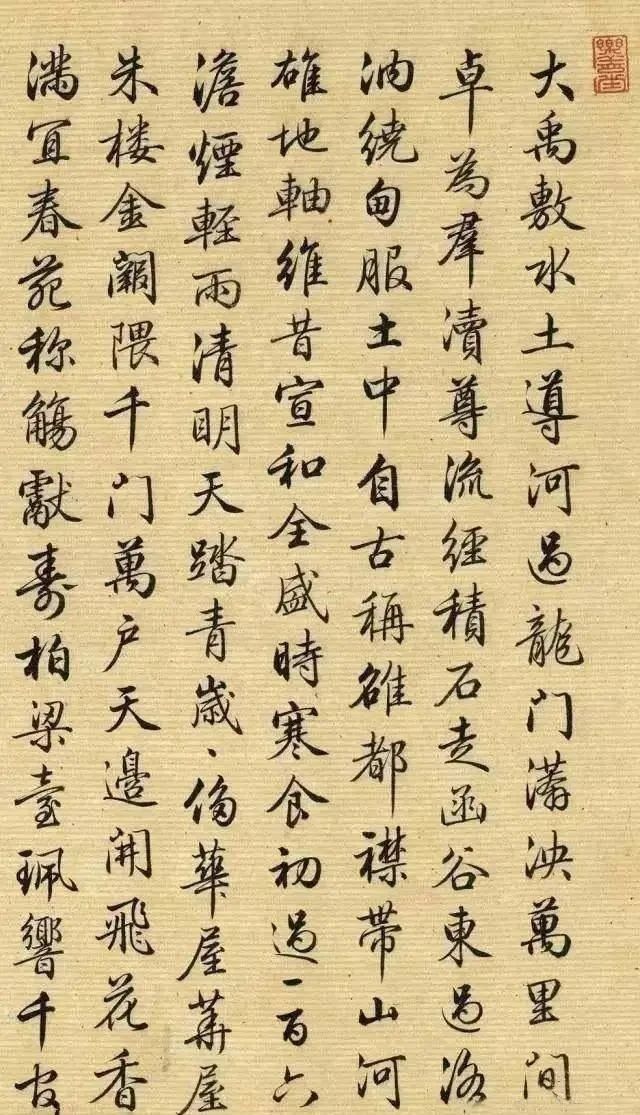 大禹敷水土導河過龍门漭泱萬里間
卓為羣瀆尊流經積石走函谷東過洛
汭繞甸服土中自古稱雄都襟帶山河
雄地軸維昔宣和全盛時寒食初過一百六
澹煙輕雨清明天踏青歲〻華屋華屋
朱楼金闕隈千门萬户天邊開飛花香
滿宜春苑称觴獻壽柏梁臺珮響千官